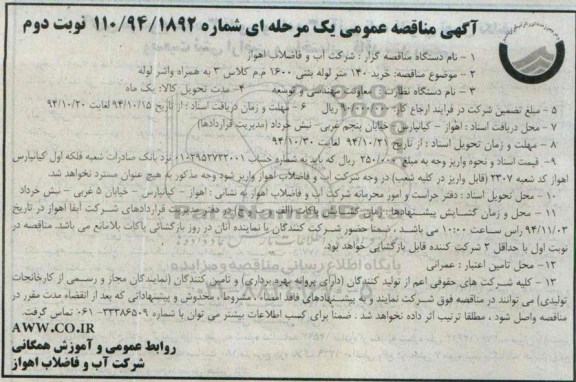 آگهی مناقصه عمومی یک مرحله ای شماره ۱۱۰/۹۴/۱۸۹۲ نوبت دوم
۱ - نام دستگاه مناقصه گزار : شرکت آب و فاضلاب اهواز
۲ - موضوع مناقصه: خرید ۱۴۰ متر لوله بتنی ۱۶۰۰ م.م کلاس ۳ به همراه واشر لوله
۳ - نام دستگاه نظارت : معاونت مهندسی و توسعه ۴- مدت تحویل کالا: یک ماه
۵ - مبلغ تضمین شرکت در فرایند ارجاع کار: ۹۰/۰۰۰/۰۰۰ ریال ۶ - مهلت و زمان دریافت اسناد : از تاریخ ۹۴/۱۰/۱۵ لغایت ۹۴/۱۰/۲۰
۷ - محل دریافت اسناد : اهواز - کیانپارس - خیابان پنجم غربی - نبش خرداد (مدیریت قراردادها)
۸ - مهلت و زمان تحویل اسناد : از تاریخ ۹۴/۱۰/۲۱ لغایت ۹۴/۱۰/۳۰
۹- قیمت اسناد و نحوه واریز وجه به مبلغ ۲۵۰/۰۰۰ ریال که باید به شماره حساب ۰۱۰۲۹۵۲۷۲۲۰۰۱ نزد بانک صادرات شعبه فلکه اول کیانپارس
اهواز کد شعبه ۲۳۰۷ (قابل واریز در کلیه شعب) در وجه شرکت آب و فاضلاب اهواز واریز شود وجه مذکور به هیچ عنوان مسترد نخواهد شد.
۱۰- محل تحویل اسناد : دفتر حراست و امور محرمانه شرکت آب و فاضلاب اهواز به نشانی : اهواز - کیانپارس - خیابان ۵ غربی - نبش خرداد
۱۱ - محل و زمان گشایش پیشنهادها: زمان گشایش پاکات در دفتر مدیریت قراردادهای شرکت آبفا اهواز در تاریخ
۹۴/۱۱/۰۳ راس ساعت ۱۰:۰۰ می باشد . ضمنا حضور شرکت کنندگان یا نماینده آنان در روز بازگشائی پاکات بلامانع می باشد. مناقصه در
نوبت اول با حداقل ۳ شرکت کننده قابل بازگشایی خواهد بود.
۱۲- محل تامین اعتبار : عمرانی
۱۳ - کلیه شرکت های حقوقی اعم از تولید کنندگان (دارای پروانه بهره برداری) و تامین کنندگان (نمایندگان مجاز و رسمی از کارخانجات
تولیدی) می توانند در مناقصه فوق شرکت نمایند و به پیشنهادهای فاقد امضاء، مشروط، مخدوش و پیشنهاداتی که بعد از انقضاء مدت مقرر در
مناقصه واصل شود ، مطلقا ترتیب اثر داده نخواهد شد . ضمنا برای کسب اطلاعات بیشتر می توان با شماره ۳۳۳۸۶۵۰۹- ۰۶۱ تماس گرفت.
AWW.CO.IR
روابط عمومی و آموزش همگانی
شرکت آب و فاضلاب اهواز